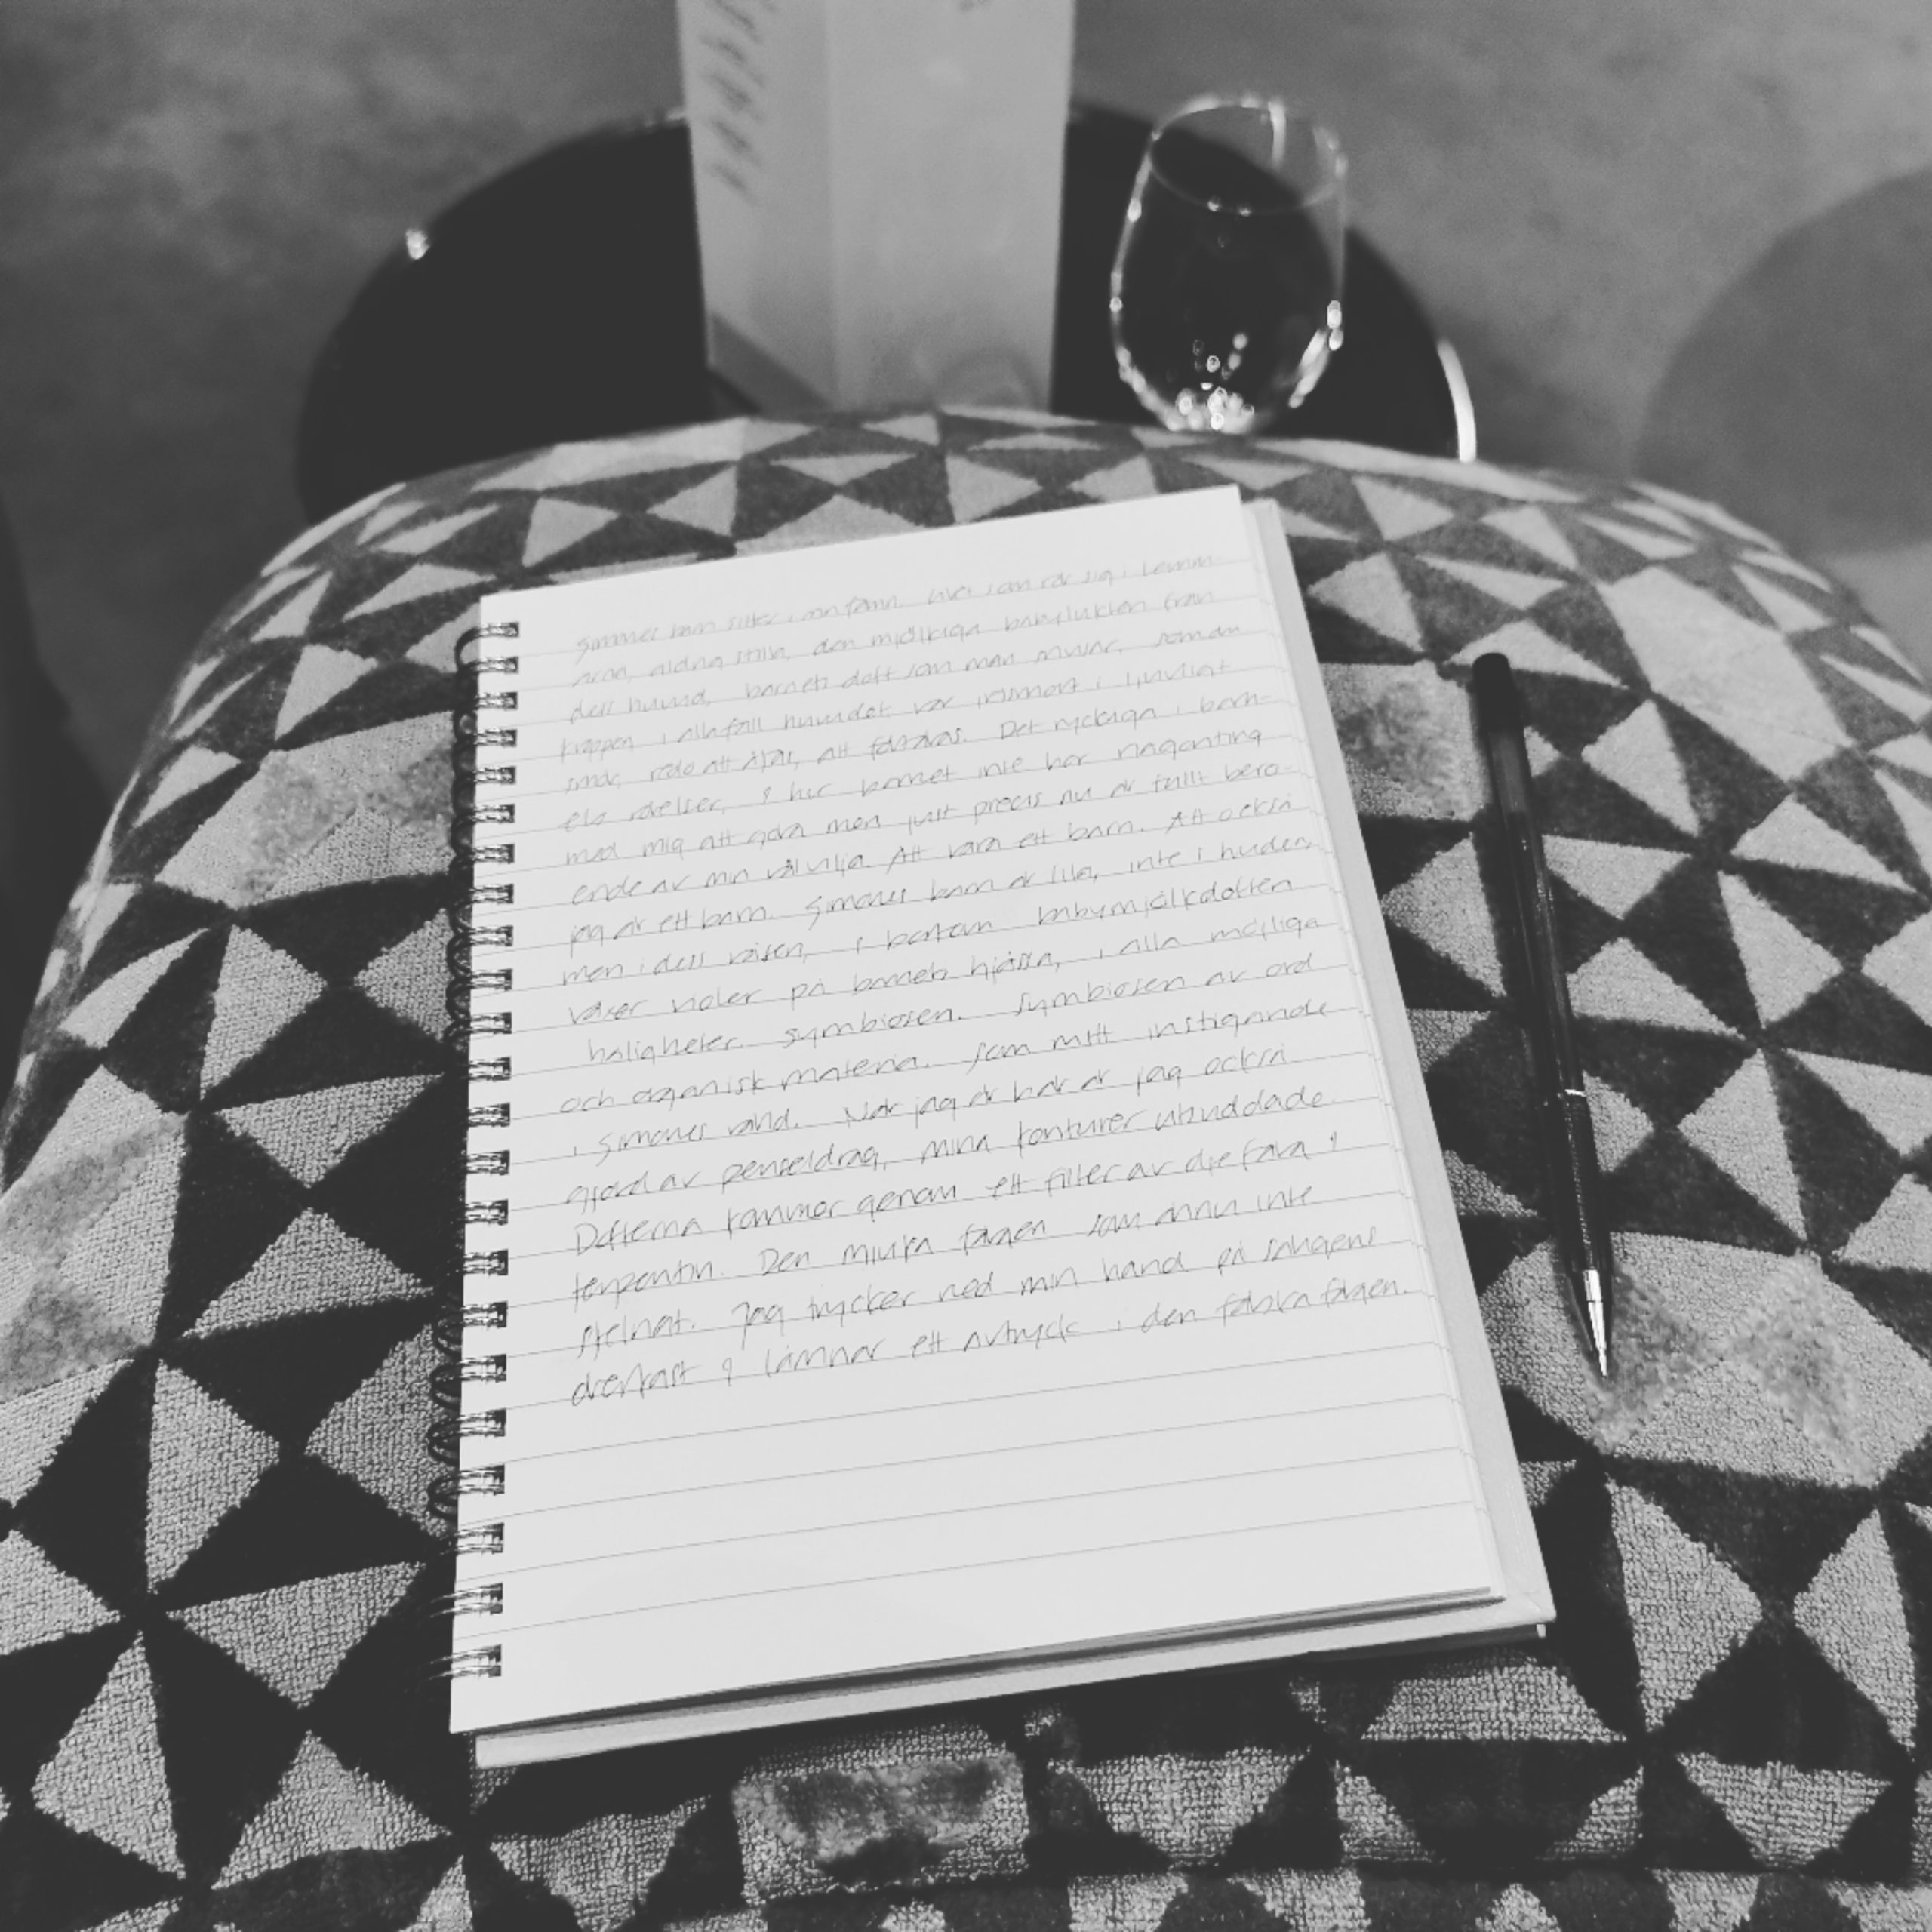 Simones barn sitter i min famn. Livet i den rör sig i lemm-
arna, aldrig stilla, den mjölkiga babylukten från
dess huvud, barnets doft som man minns, som du
kroppen i alla fall huvudet var insmort i ljuvligt
smör, redo att ätas, att förtäras. Det ryckiga i barn-
ets rörelser, & hur barnet inte har någonting
med mig att göra men just precis nu är fullt bero-
ende av min välvilja. Att vara ett barn. Att också
jag är ett barn. Simones barn är lila, inte i huden
men i dess väsen, i bortom babymjölkdoften
växer violer på barnets hjässa, i alla möjliga
håligheter. Symbiosen. Symbiosen av ord
och organisk materia. Som mitt instigande
i Simones värld. När jag är här är jag också
gjord av penseldrag, mina konturer utsuddade.
Dofterna kommer genom ett filter av oljefärg &
terpentin. Den mjuka färgen som ännu inte
stelnat. Jag trycker ned min hand på sängens
överkast & lämnar ett avtryck i den färska färgen.